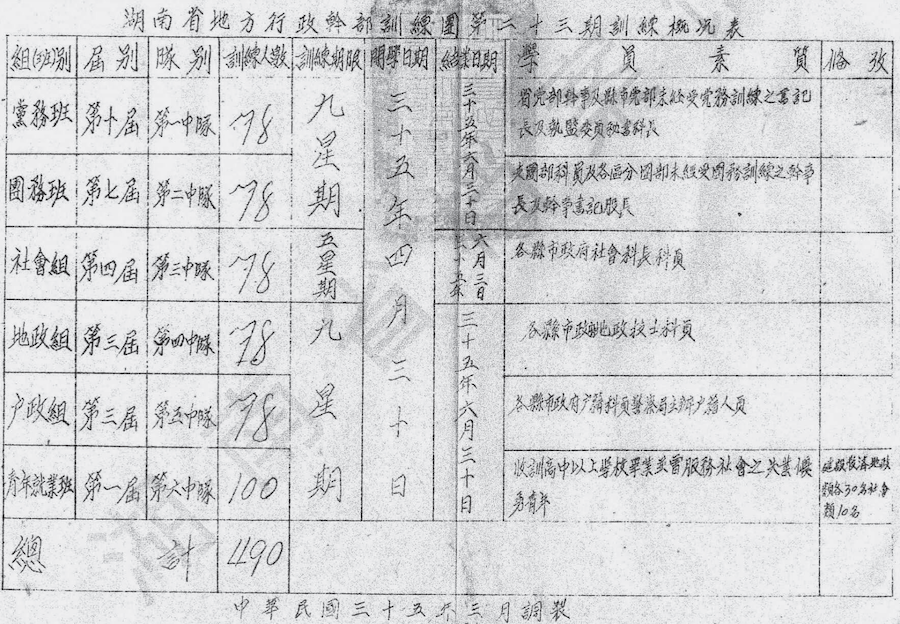 湖南省地方行政幹部訓練團第二十三期訓練概況表
組(班)別 届别 隊别 訓練人數 訓練期限 開學日期 結業日期 學員素質 備攷
黨務班 第十届 第一中隊 78 九星期 三十五年四月三十日 三十五年六月三十日 省党部幹事及縣市党部未經受党務訓練之書記
長及執監委員秘書科長
團務班 第七届 第二中隊 78 支團部科員及各區分團部未經受團務訓練之幹事
長及幹事書記股長
社會組 第四届 第三中隊 78 五星期 三十五年六月三日 各縣市政府社會科長科員
地政組 第三届 第四中隊 78 九星期 三十五年六月三十日 各縣市政府地政技士科員
户政組 第三届 第五中隊 78 各縣市政府户籍科員警察局主辦户籍人員
青年就業班 第一届 第六中隊 100 收訓高中以上學校畢業並曾服務社會之失業優
秀青年
地政
類各30名社會
類10名
總計 490
中華民國三十五年三月調製